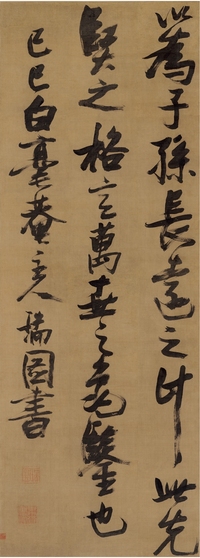 以為子孫長遠之計此先
賢之格言萬世之龜鑒也
己巳白毫菴主人瑞圖書